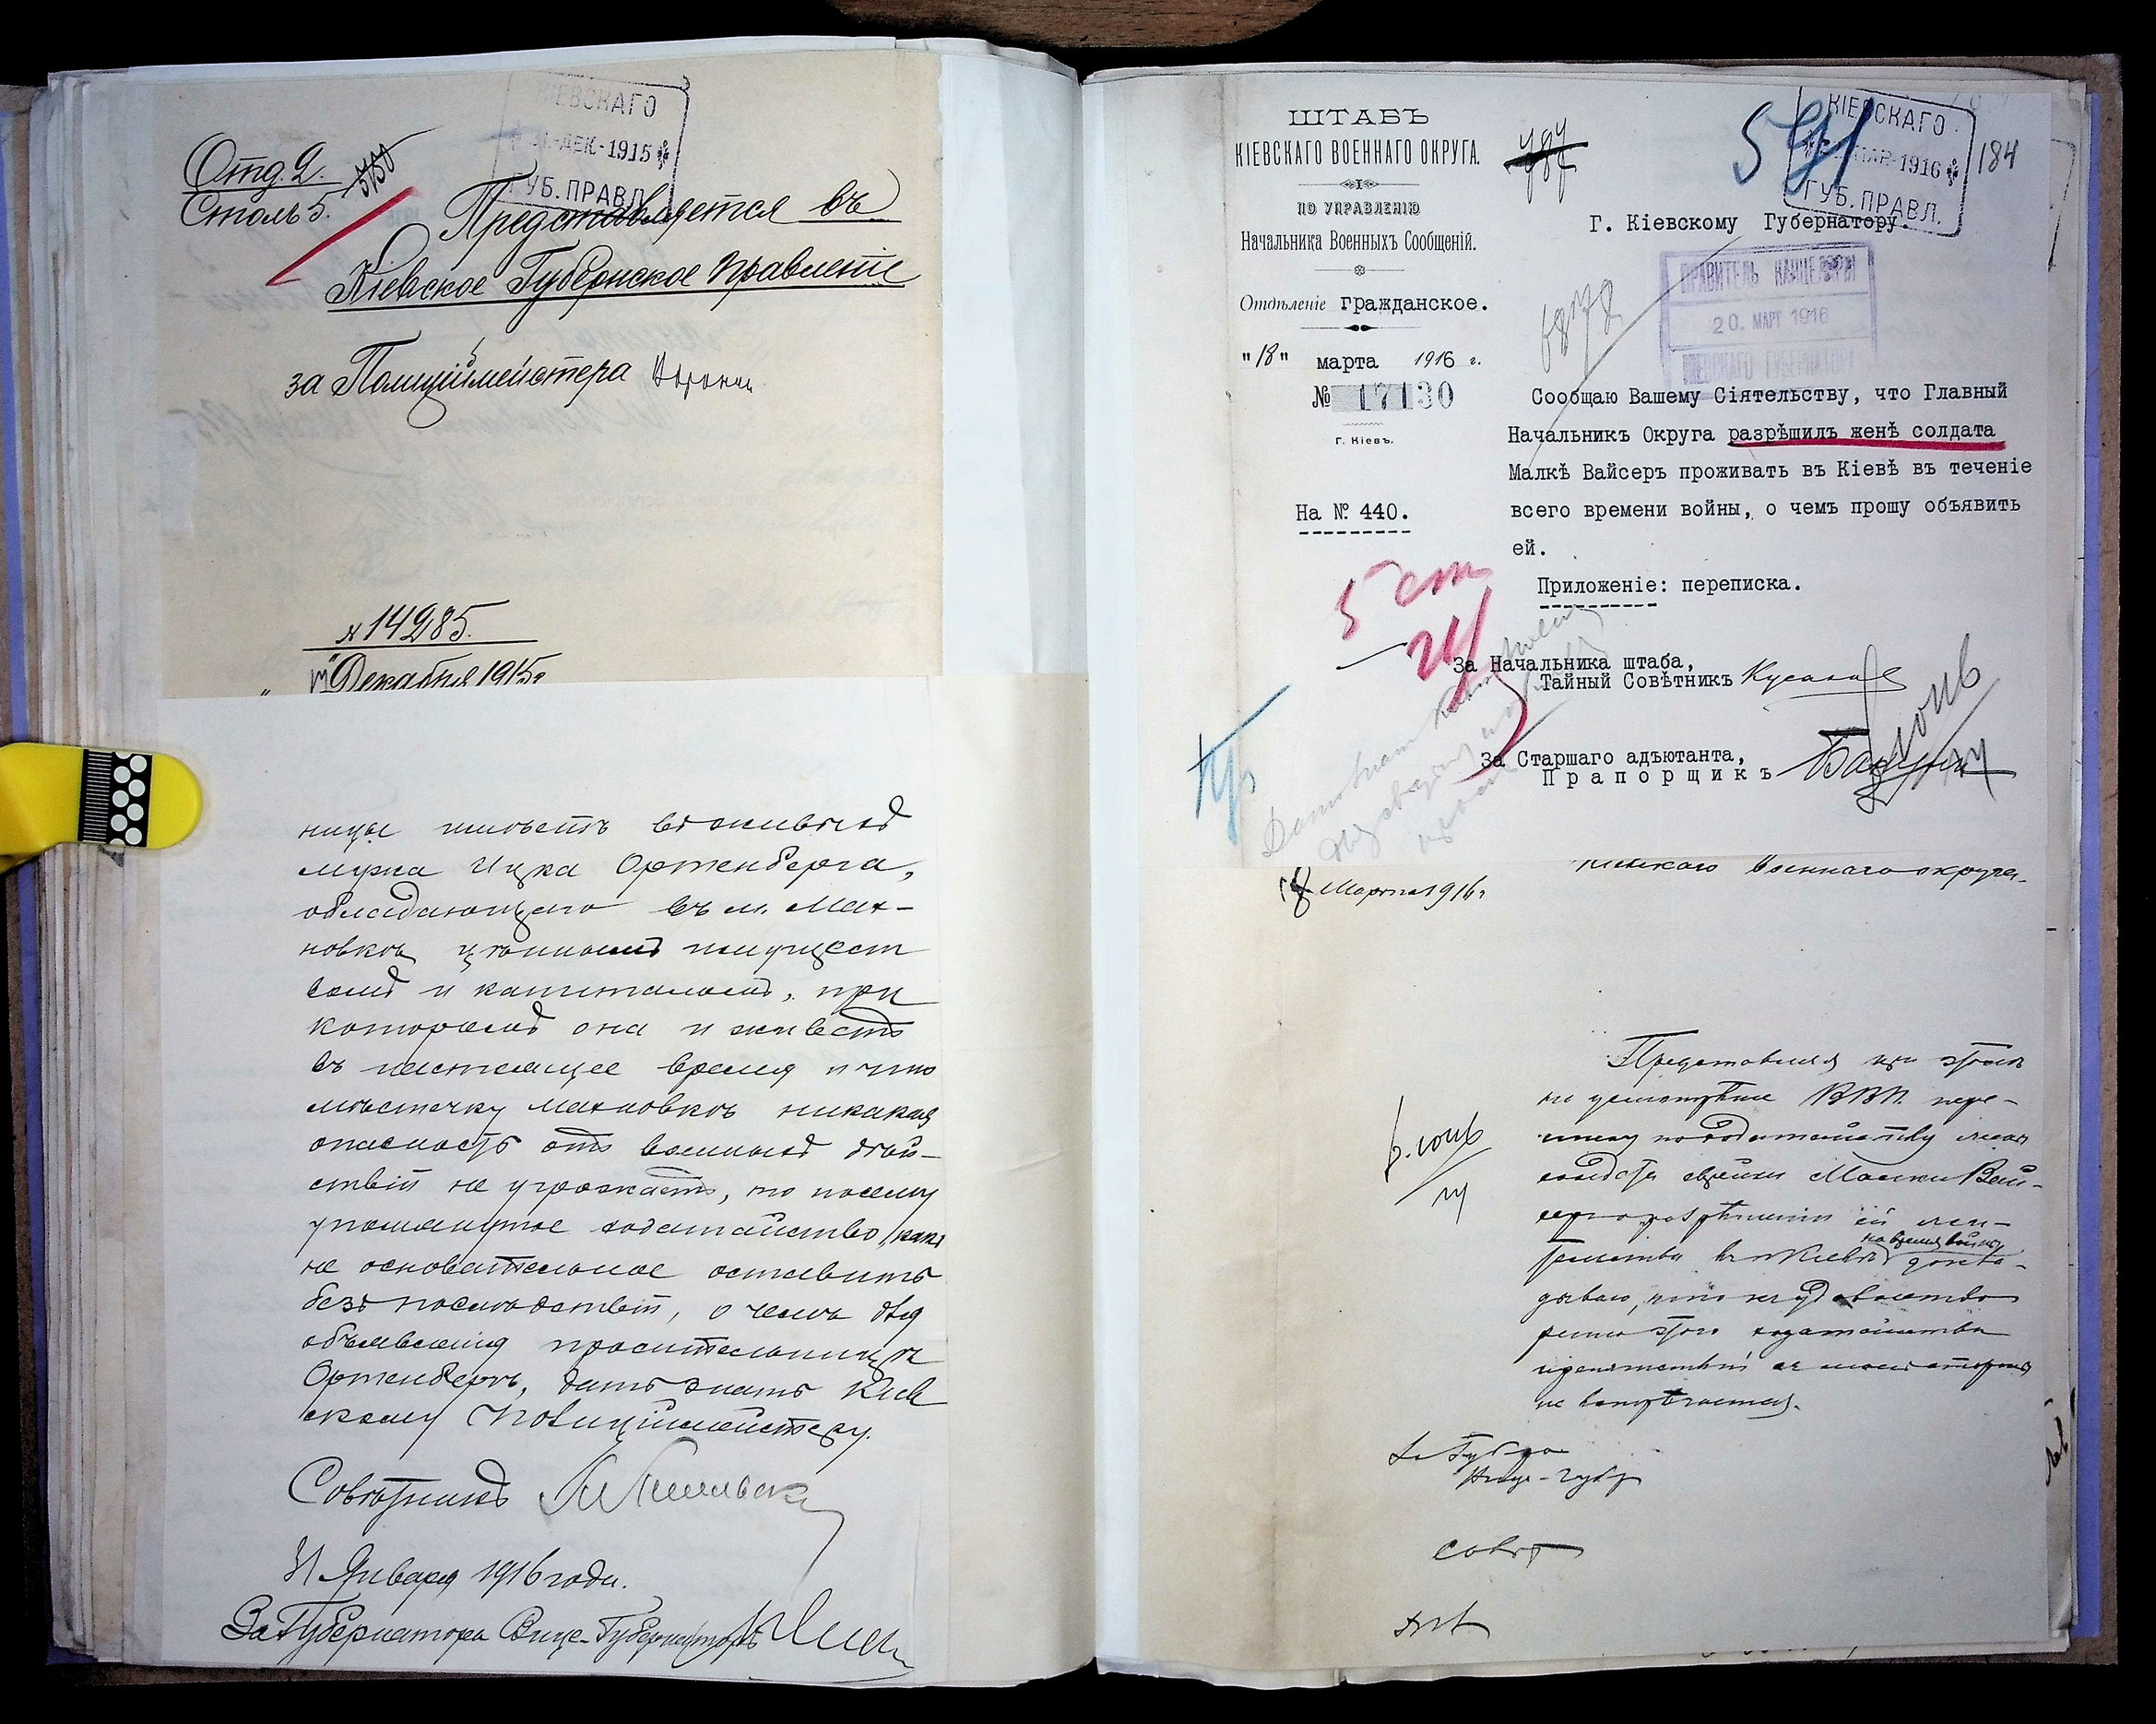 КІЕВСКАГО
ДЕК-1915
ГУБ.ПРАВЛ.
Отд. 2.
Столъ 5.
Представляется въ
Кіевское Губернское Правленіе
за Полиціймейстера
№ 14285.
Декабря 1915 г.
ницы имѣетъ въ живыхъ
мужа Ицка Ортенберга,
обладающаго въ м. Мах-
новкѣ цѣннымъ имущест
вомъ и капиталомъ, при
которомъ она и живетъ
въ настоящее время и что
мѣстечку Махновкѣ никакая
опасность отъ военныхъ дѣй-
ствій не угрожаетъ, то посему
упомянутое ходатайство, какъ
не основательное оставить
безъ послѣдствій, о чемъ для
объявленія просительницѣ
Ортенбергъ, дать знать Кіев
скому Полиціймейстеру.
Совѣтникъ
31 Января 1916 года.
За Губернатора Вице-Губернаторъ
ШТАБЪ
КІЕВСКАГО ВОЕННАГО ОКРУГА.
ПО УПРАВЛЕНІЮ
Начальника Военныхъ Сообщеній.
Отдѣленіе Гражданское.
"18" марта 1916 г.
№ 17130
Г. Кіевъ.
На № 440.
КІЕВСКАГО
МАР-1916
ГУБ.ПРАВЛ.
184
Г. Кіевскому Губернатору.
ПРАВИТЕЛЬ КАНЦЕЛЯРІИ
20. МАРТ 1916
КІЕВСКАГО ГУБЕРНАТОРА
Сообщаю Вашему Сіятельству, что Главный
Начальникъ Округа разрѣшилъ женѣ солдата
Малкѣ Вайсеръ проживать въ Кіевѣ въ теченіе
всего времени войны, о чемъ прошу объявить
ей.
Приложеніе: переписка.
5 ст
За Начальника штаба,
Тайный Совѣтникъ
За Старшаго адъютанта,
Прапорщикъ
Марта 1916 г
Кіевскаго Военнаго округа.
Представляя при этомъ
на усмотрѣніе ВВП. пере-
писку по ходатайству жены
солдата еврейки Малки Вай-
серъ о разрѣшеніи ей жи-
тельства въ г. Кіевѣ на время войны докла-
дываю, что къ удовлетво
ренію этого ходатайства
препятствій съ моей стороны
не встрѣчается.
За Губер
Вице-губер
совѣт